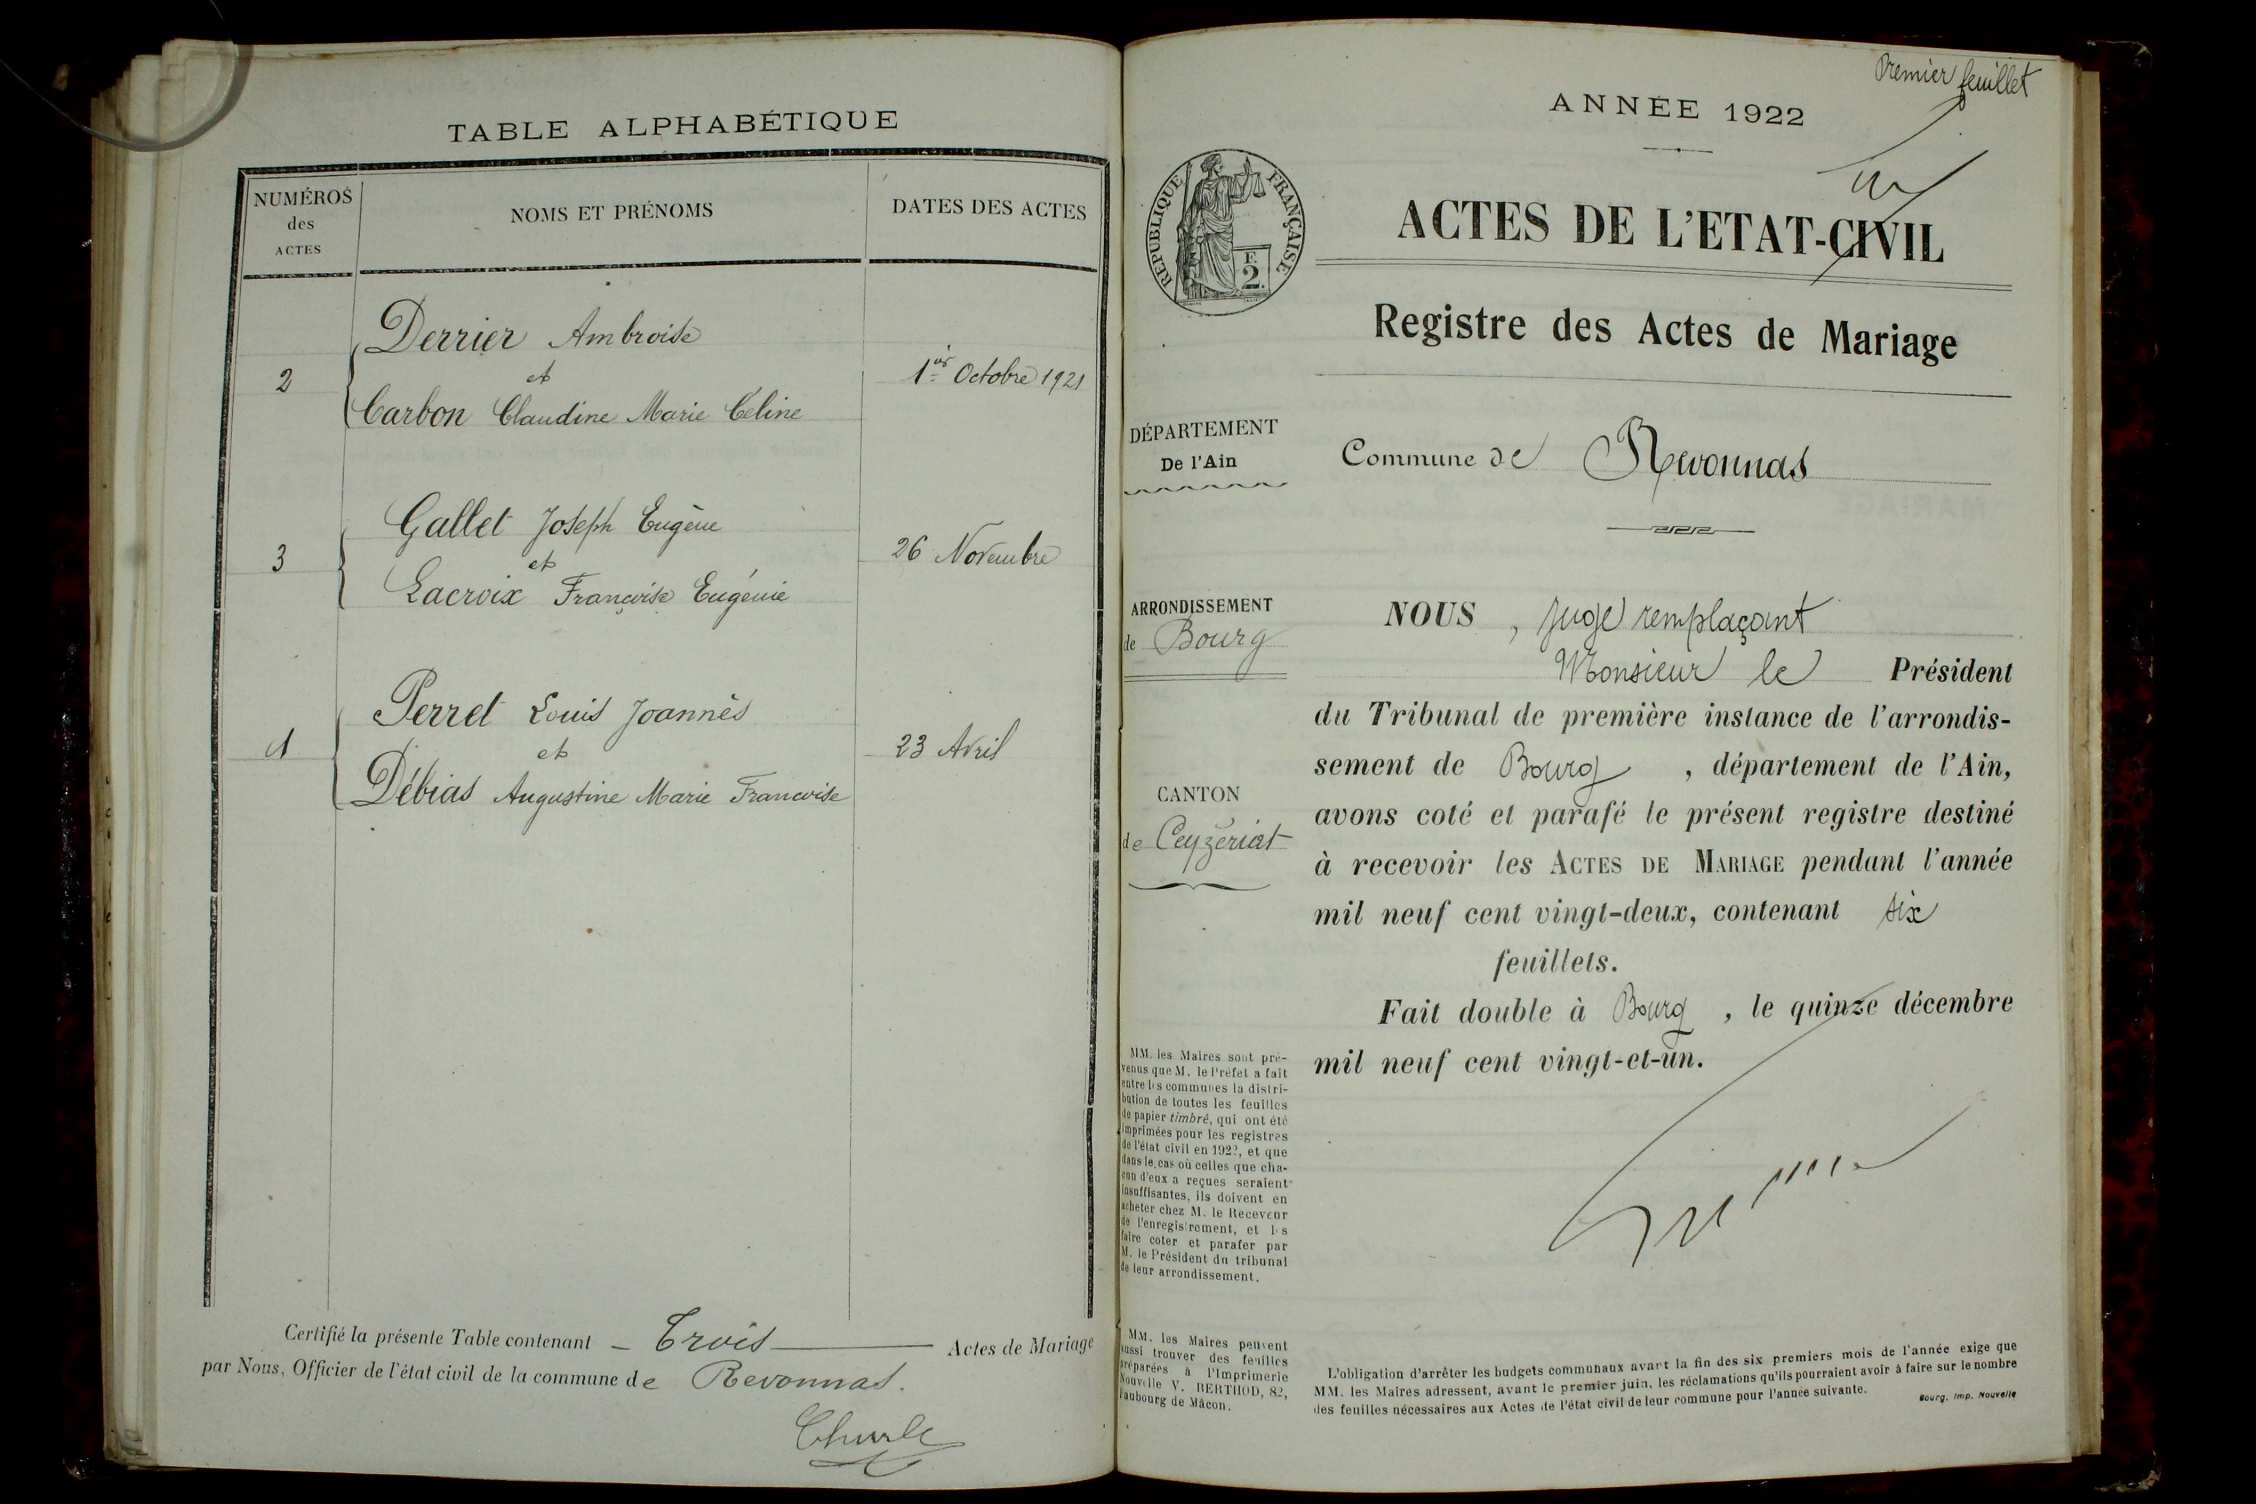 TABLE ALPHABÉTIQUE
NUMÉROS
des
ACTES
NOMS ET PRÉNOMS
DATES DES ACTES
Derrier Ambroise
2
et
1er Octobre 1921
Carbon Claudine Marie Céline
Gallet Joseph Eugène
3
et
26 Novembre
Lacroix Françoise Eugénie
Perret Louis Joannès
1
et
23 Avril
Débias Augustine Marie Francoise
Certifié la présente Table contenant - Trois Actes de Mariage
par Nous, Officier de l'état civil de la commune de Revonnas.
Premier feuillet
ANNÉE 1922
RÉPUBLIQUE FRANÇAISE
F.
2.
ACTES DE L'ETAT-CIVIL
Registre des Actes de Mariage
DÉPARTEMENT
De l'Ain
Commune de Revonnas
ARRONDISSEMENT
de Bourg
CANTON
de Ceyzériat
NOUS, Juge remplaçant
Monsieur le Président
du Tribunal de première instance de l'arrondis-
sement de Bourg, département de l'Ain,
avons coté et parafé le présent registre destiné
à recevoir les ACTES DE MARIAGE pendant l'année
mil neuf cent vingt-deux, contenant six
feuillets.
Fait double à Bourg, le quinze décembre
mil neuf cent vingt-et-un.
MM. les Maires sont pré-
venus que M. le Préfet a fait
entre les communes la distri-
bution de toutes les feuilles
de papier timbré, qui ont été
imprimées pour les registres
de l'état civil en 1922, et que
dans le cas où celles que cha-
cun d'eux a reçues seraient
insuffisantes, ils doivent en
acheter chez M. le Receveur
de l'enregistrement, et les
faire coter et parafer par
M. le Président du tribunal
de leur arrondissement.
MM. les Maires peuvent
aussi trouver des feuilles
préparées à l'Imprimerie
Nouvelle V. BERTHOD, 82,
Faubourg de Mâcon.
L'obligation d'arrêter les budgets communaux avant la fin des six premiers mois de l'année exige que
MM. les Maires adressent, avant le premier juin, les réclamations qu'ils pourraient avoir à faire sur le nombre
des feuilles nécessaires aux Actes de l'état civil de leur commune pour l'année suivante.
Bourg, Imp. Nouvelle